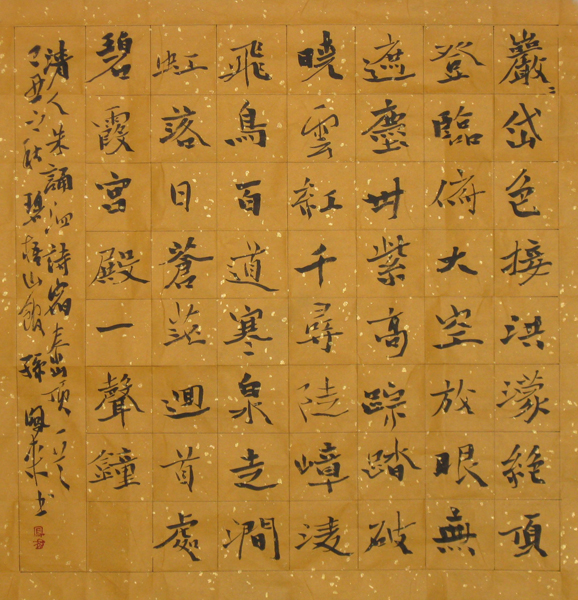 巖〻岱色接洪濛絕頂
登臨俯大空放眼無
遮塵世紫高蹤踏破
曉雲紅千尋陡嶂淩
飛鳥百道寒泉走澗
虹落日蒼茫迴首處
碧霞宮殿一聲鐘
清人朱誦泗詩宿頂一首
己丑之秋碧梧山館孫來書